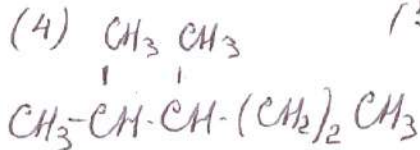 (4) CH₃ CH₃
CH₃-CH-CH-(CH₂)₂ CH₃